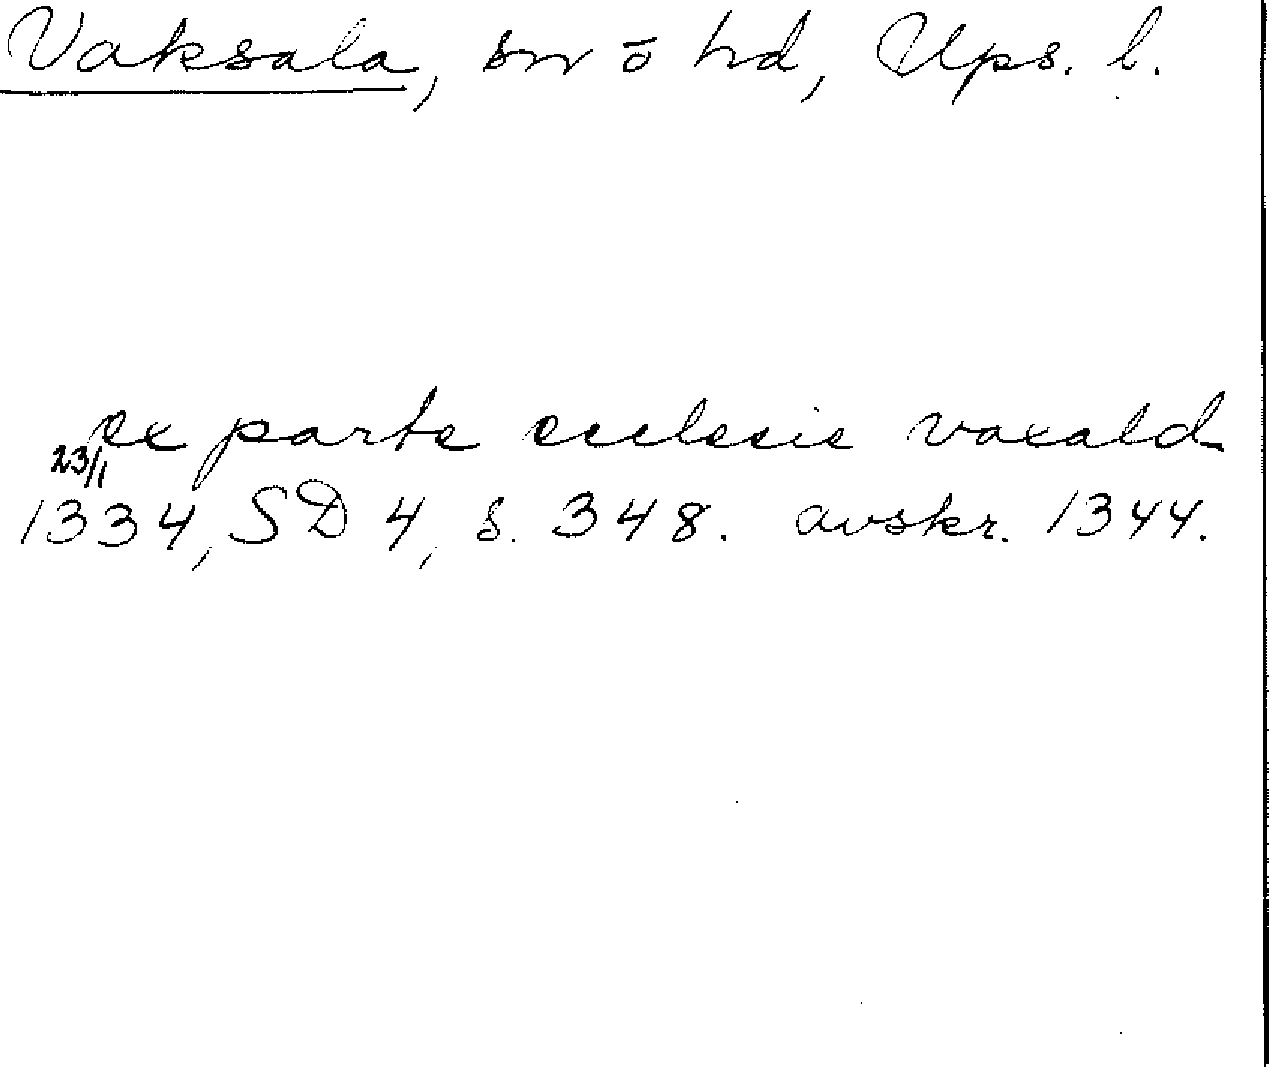 Vaksala, sn o hd, Ups. l.
ex parte ecclesie vaxald
23/1
1334, SD 4, s. 348. avskr. 1344.